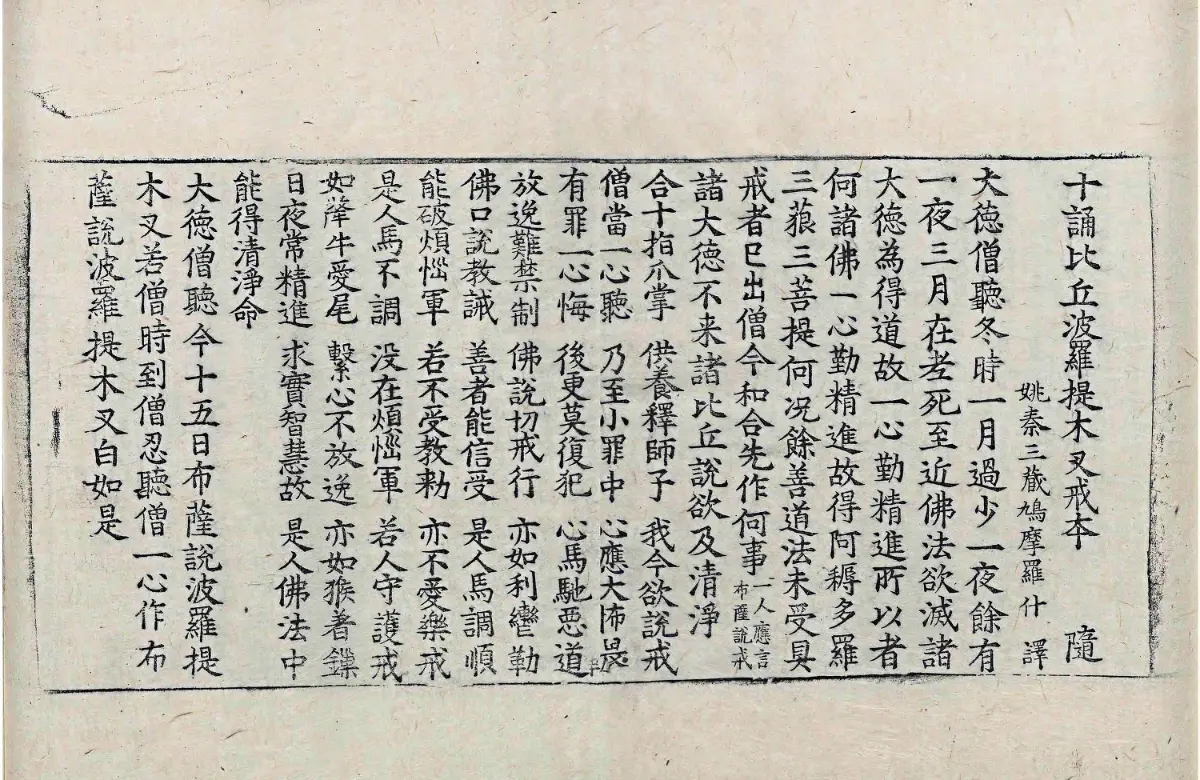 十誦比丘波羅提木叉戒本 隨
姚秦三藏鳩摩羅什 譯
大德僧聽冬時一月過少一夜餘有
一夜三月在老死至近佛法欲滅諸
大德為得道故一心勤精進所以者
何諸佛一心勤精進故得阿耨多羅
三藐三菩提何况餘善道法未受具
戒者已出僧今和合先作何事一人應言布薩說戒
諸大德不来諸比丘說欲及清淨
合十指爪掌 供養釋師子 我今欲說戒
僧當一心聽 乃至小罪中 心應大怖畏
有罪一心悔 後更莫復犯 心馬馳惡道
放逸難禁制 佛說切戒行 亦如利轡勒
佛口說教誡 善者能信受 是人馬調順
能破煩惱軍 若不受教勑 亦不愛樂戒
是人馬不調 没在煩惱軍 若人守護戒
如犛牛愛尾 繫心不放逸 亦如猴著鏁
日夜常精進 求實智慧故 是人佛法中
能得清淨命
大德僧聽今十五日布薩說波羅提
木叉若僧時到僧忍聽僧一心作布
薩說波羅提木叉白如是